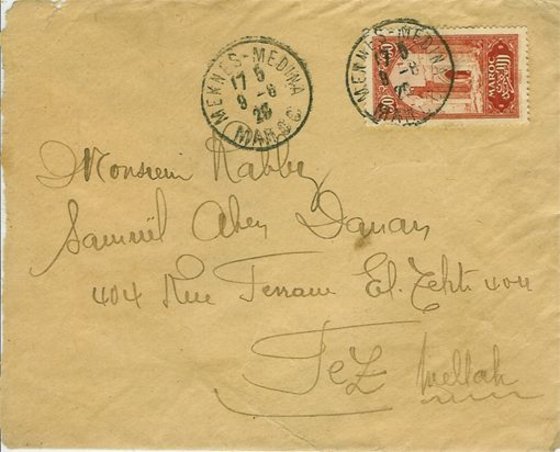 MEKNES-MEDINA
17 5
9 -8
26
MAROC
MEKNES-MEDINA
17 5
9 -8
MAROC
Monsieur Rabby
Samuël Aben Danan
404 Rue Terrain El. 404
Fez Mellah